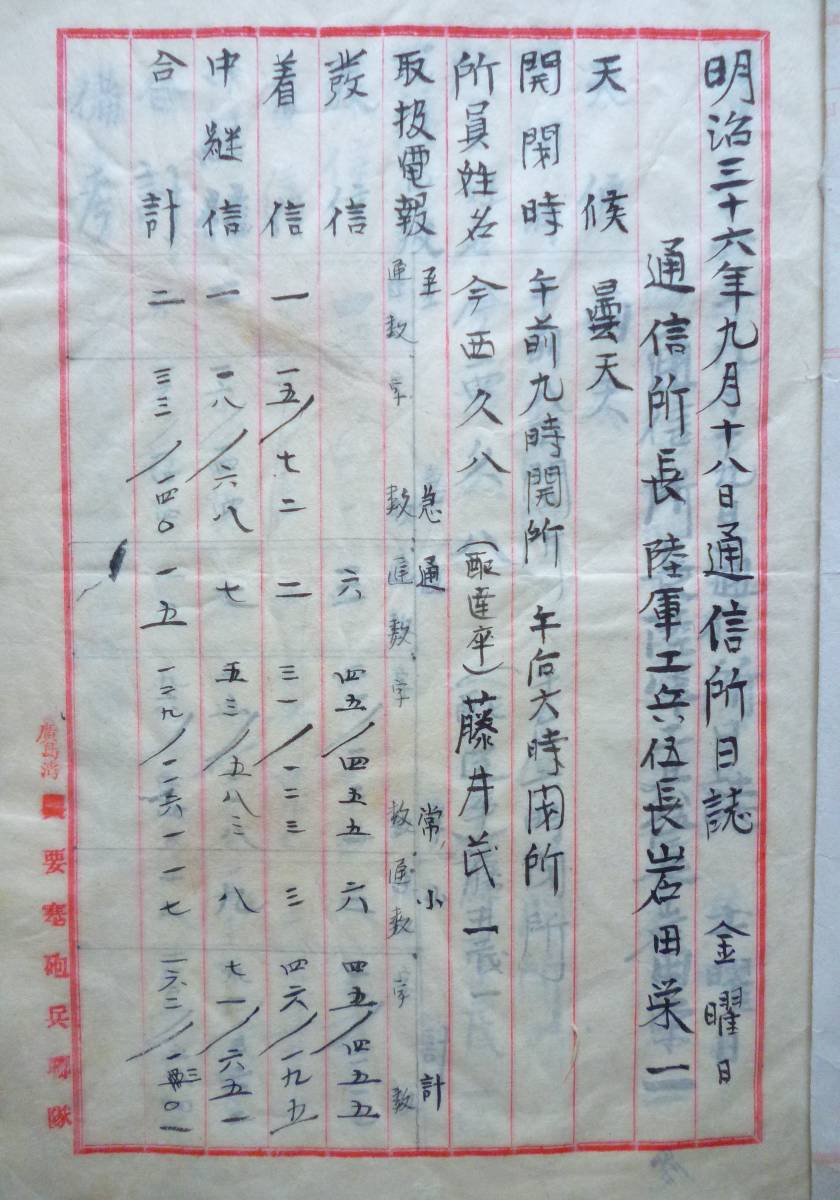 明治三十六年九月十八日通信所日誌 金曜日
通信所長 陸軍工兵伍長岩田栄一
天候 曇天
開閉時 午前九時開所 午后六時閉所
所員姓名 今西久八 (配達卒)藤井茂一
取扱電報 至急 通常 小計
通数 字数 通数 字数 通数 字数
発信 六 四五/四五五 六 四五/四五五
着信 一 一五/七二 二 三一/一二三 三 四六/一九五
中継信 一 一八/六八 七 五三/五八三 八 七一/六五一
合計 二 三三/一四〇 一五 一二九/一一六一 一七 一六二/一三〇一
要塞砲兵聯隊